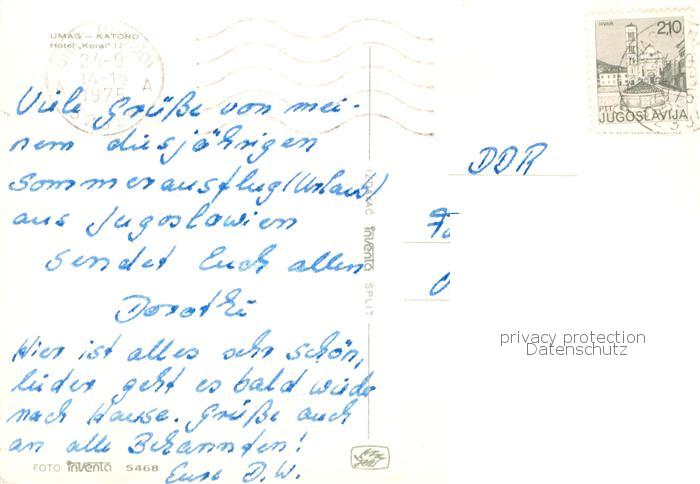 UMAG – KATORO
Hotel „Koral"
24-9
1975
A
HVAR
2,10
PTT
JUGOSLAVIJA
Viele Grüße von mei-
nem diesjährigen
Sommerausflug (Urlaub)
aus Jugoslawien
sendet Euch allen
Dorothé
Hier ist alles sehr schön,
leider geht es bald wieder
nach Hause. Grüße auch
an alle Bekannten!
Eure D. W.
DDR
IZDAVAČ inventa SPLIT
FOTO inventa 5468
privacy protection
Datenschutz